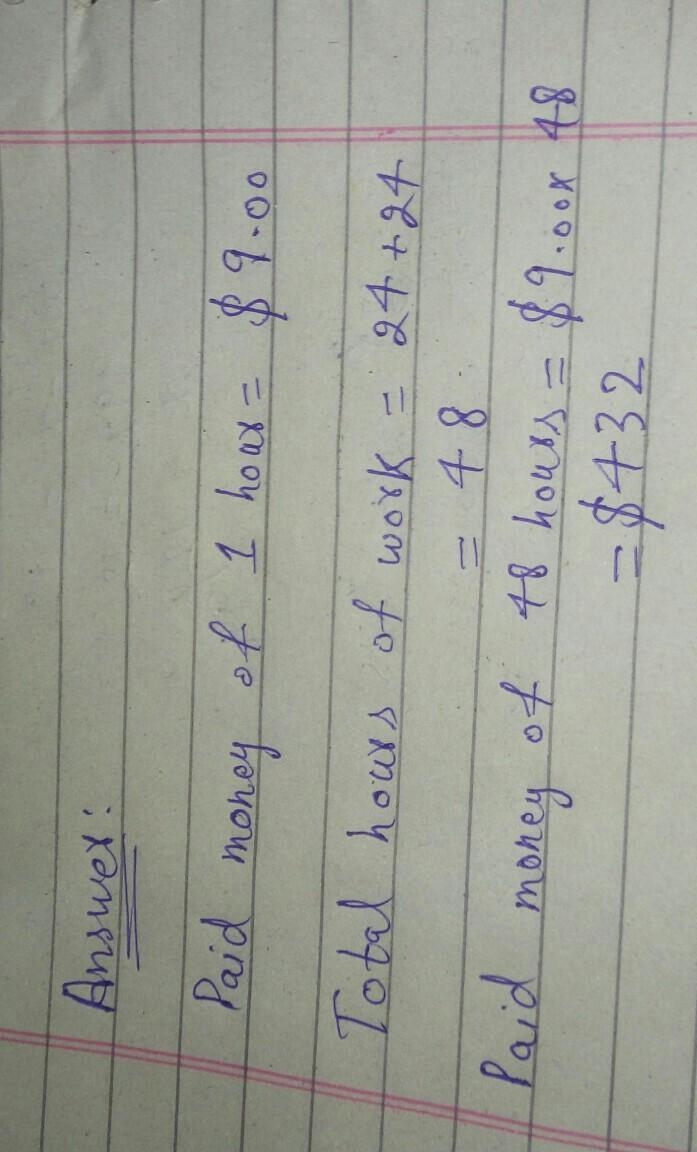 Answer:
Paid money of 1 hour = $9.00
Total hours of work = 24 + 24
= 48
Paid money of 48 hours = $9.00x 48
= $432